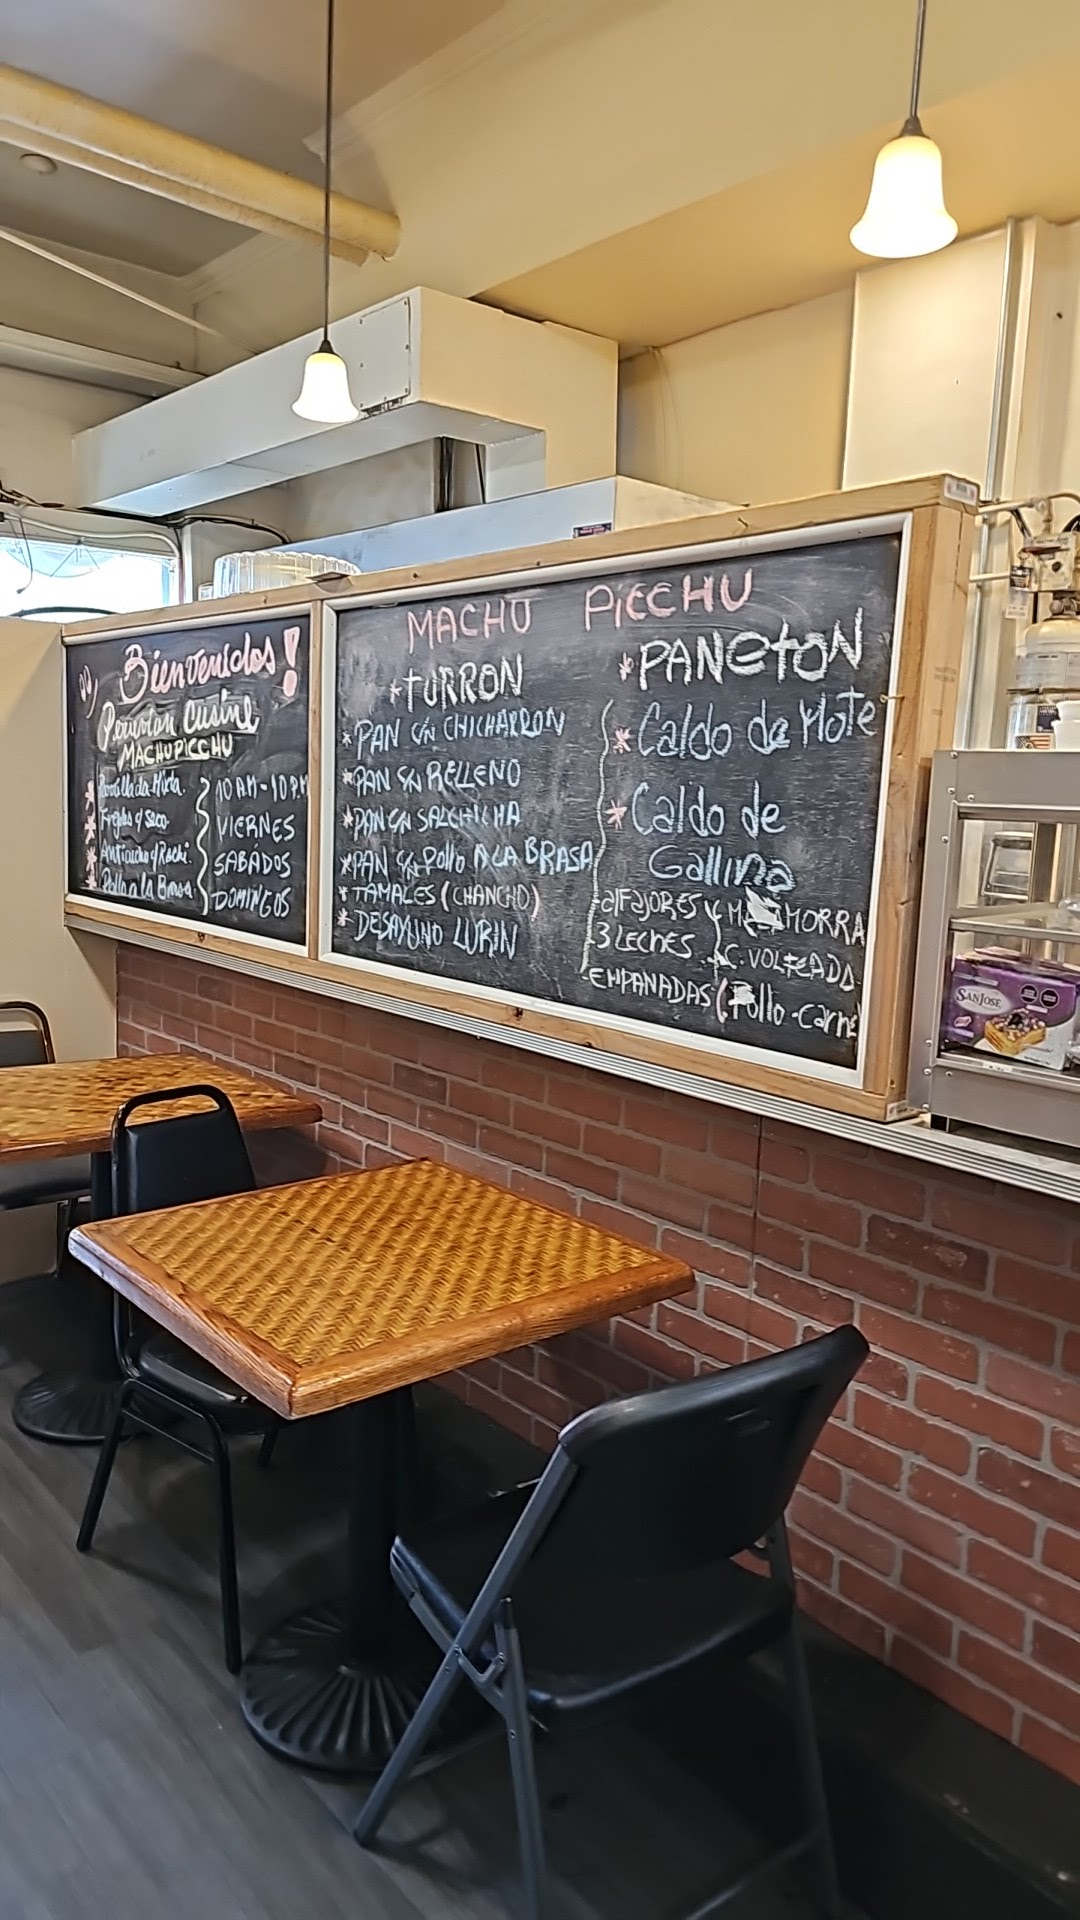 Bienvenidos!
Peruvian Cusine
MACHUPICCHU
*Parrillada Mixta.
*Frejoles y seco.
*Anticucho y Rachi.
*Pollo a la Brasa
10 AM-10 PM
VIERNES
SABÁDOS
DOMINGOS
MACHU PICCHU
*TURRON
*PAN CN CHICHARRON
*PAN CN RELLENO
*PAN CN SALCHICHA
*PAN CN POLLO A LA BRASA
*TAMALES (CHANCHO)
*DESAYUNO LURIN
*PANETON
*Caldo de Mote
*Caldo de
Gallina
-alFAJORES Y MAZAMORRA
-3 LECHES
-C. VOLTEADA
-EMPANADAS (Pollo-carne
SANJOSE